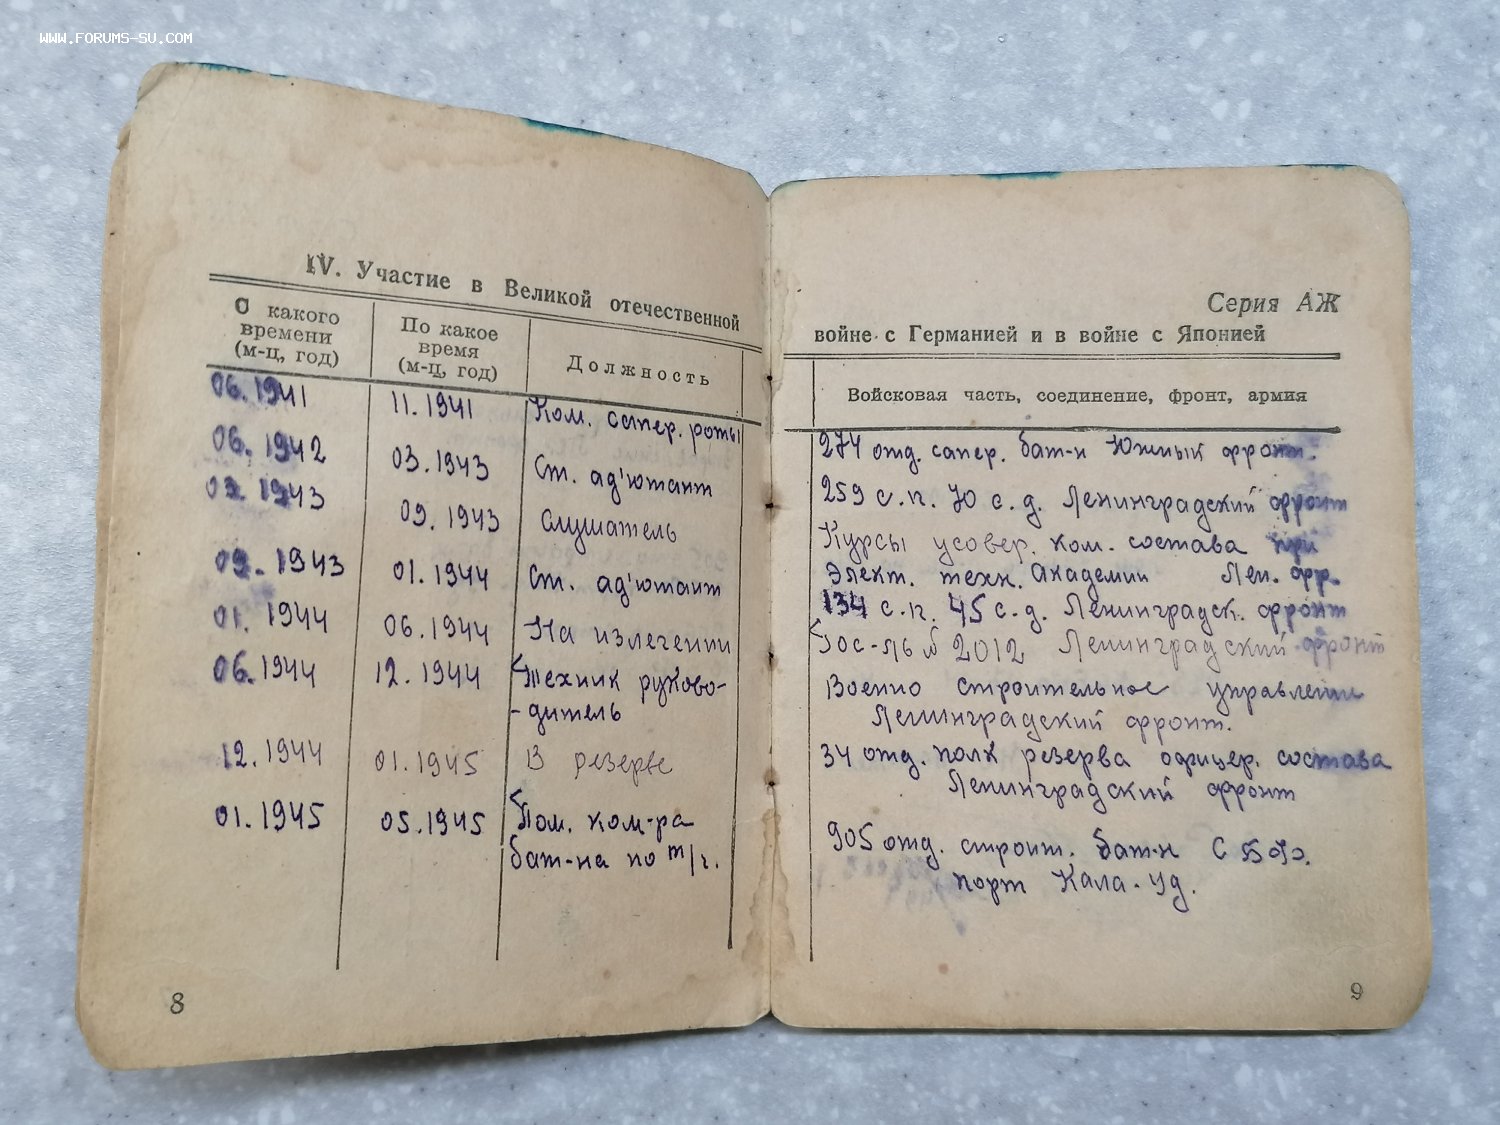 WWW.FORUMS-SU.COM
IV. Участие в Великой отечественной
С какого времени (м-ц, год)
По какое время (м-ц, год)
Должность
06.1941 11.1941 Ком. сапер. роты
06.1942 03.1943 Ст. ад'ютант
03.1943 09.1943 Слушатель
09.1943 01.1944 Ст. ад'ютант
01.1944 06.1944 На излечении
06.1944 12.1944 Техник руково-
-дитель
12.1944 01.1945 В резерве
01.1945 05.1945 Пом. ком-ра
бат-на по т/ч.
8
Серия АЖ
войне с Германией и в войне с Японией
Войсковая часть, соединение, фронт, армия
274 отд. сапер. бат-н Южный фронт.
259 с.п. 70 с.д. Ленинградский фронт
Курсы усовер. ком. состава при
Элект. техн. Академии Лен. фр.
134 с.п. 45 с.д. Ленинградск. фронт
Гос-ль № 2012 Ленинградский фронт
Военно строительное управление
Ленинградский фронт.
34 отд. полк резерва офицер. состава
Ленинградский фронт
905 отд. строит. бат-н
порт Кала-
9